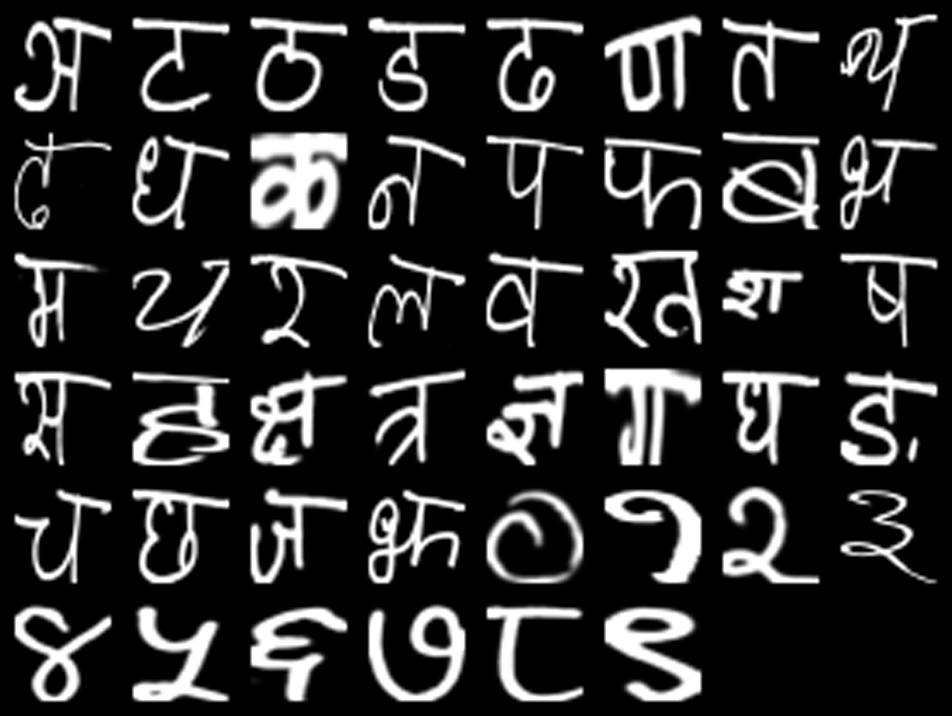 ञ ट ठ ड ढ ण त थ
द ध क न प फ ब भ
म य र ल व ख श ष
स ह क्ष त्र ज्ञ ग घ ङ
च छ ज झ ० १ २ ३
४ ५ ६ ७ ८ ९